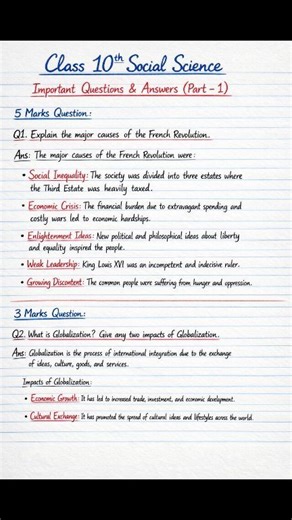 Class 10th Social Science
Important Questions & Answers (Part - 1)
5 Marks Question:
Q1. Explain the major causes of the French Revolution.
Ans: The major causes of the French Revolution were:
• Social Inequality: The society was divided into three estates where
the Third Estate was heavily taxed.
• Economic Crisis: The financial burden due to extravagant spending and
costly wars led to economic hardships.
• Enlightenment Ideas: New political and philosophical ideas about liberty
and equality inspired the people.
• Weak Leadership: King Louis XVI was an incompetent and indecisive ruler.
• Growing Discontent: The common people were suffering from hunger and oppression.
3 Marks Question:
Q2. What is Globalization? Give any two impacts of Globalization.
Ans: Globalization is the process of international integration due to the exchange
of ideas, culture, goods, and services.
Impacts of Globalization:
• Economic Growth: It has led to increased trade, investment, and economic development.
• Cultural Exchange: It has promoted the spread of cultural ideas and lifestyles across the world.